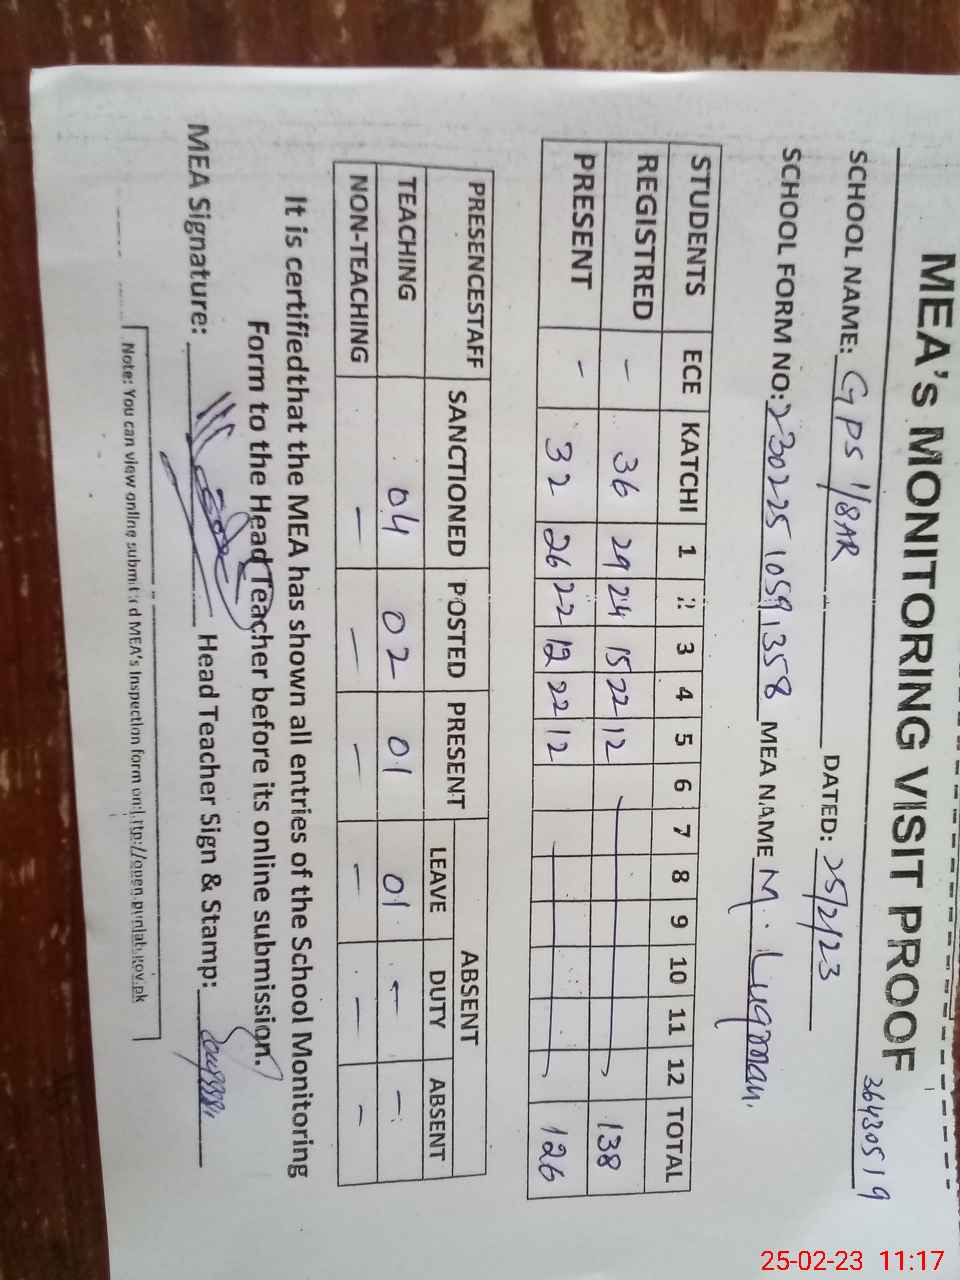 MEA's MONITORING VISIT PROOF
36430519
SCHOOL NAME: GPS 1/8AR DATED: 25/2/23
SCHOOL FORM NO: 230225 1059,358 MEA NAME M. Luqman.
STUDENTS ECE KATCHI 1 2 3 4 5 6 7 8 9 10 11 12 TOTAL
REGISTRED - 36 29 24 15 22 12 138
PRESENT - 32 26 22 12 22 12 126
PRESENCESTAFF SANCTIONED POSTED PRESENT ABSENT
LEAVE DUTY ABSENT
TEACHING 04 02 01 01 - -
NON-TEACHING - - - - - -
It is certifiedthat the MEA has shown all entries of the School Monitoring
Form to the Head Teacher before its online submission.
MEA Signature: Head Teacher Sign & Stamp:
Note: You can view online submitted MEA's Inspection form on http://open.punjab.gov.pk
25-02-23 11:17